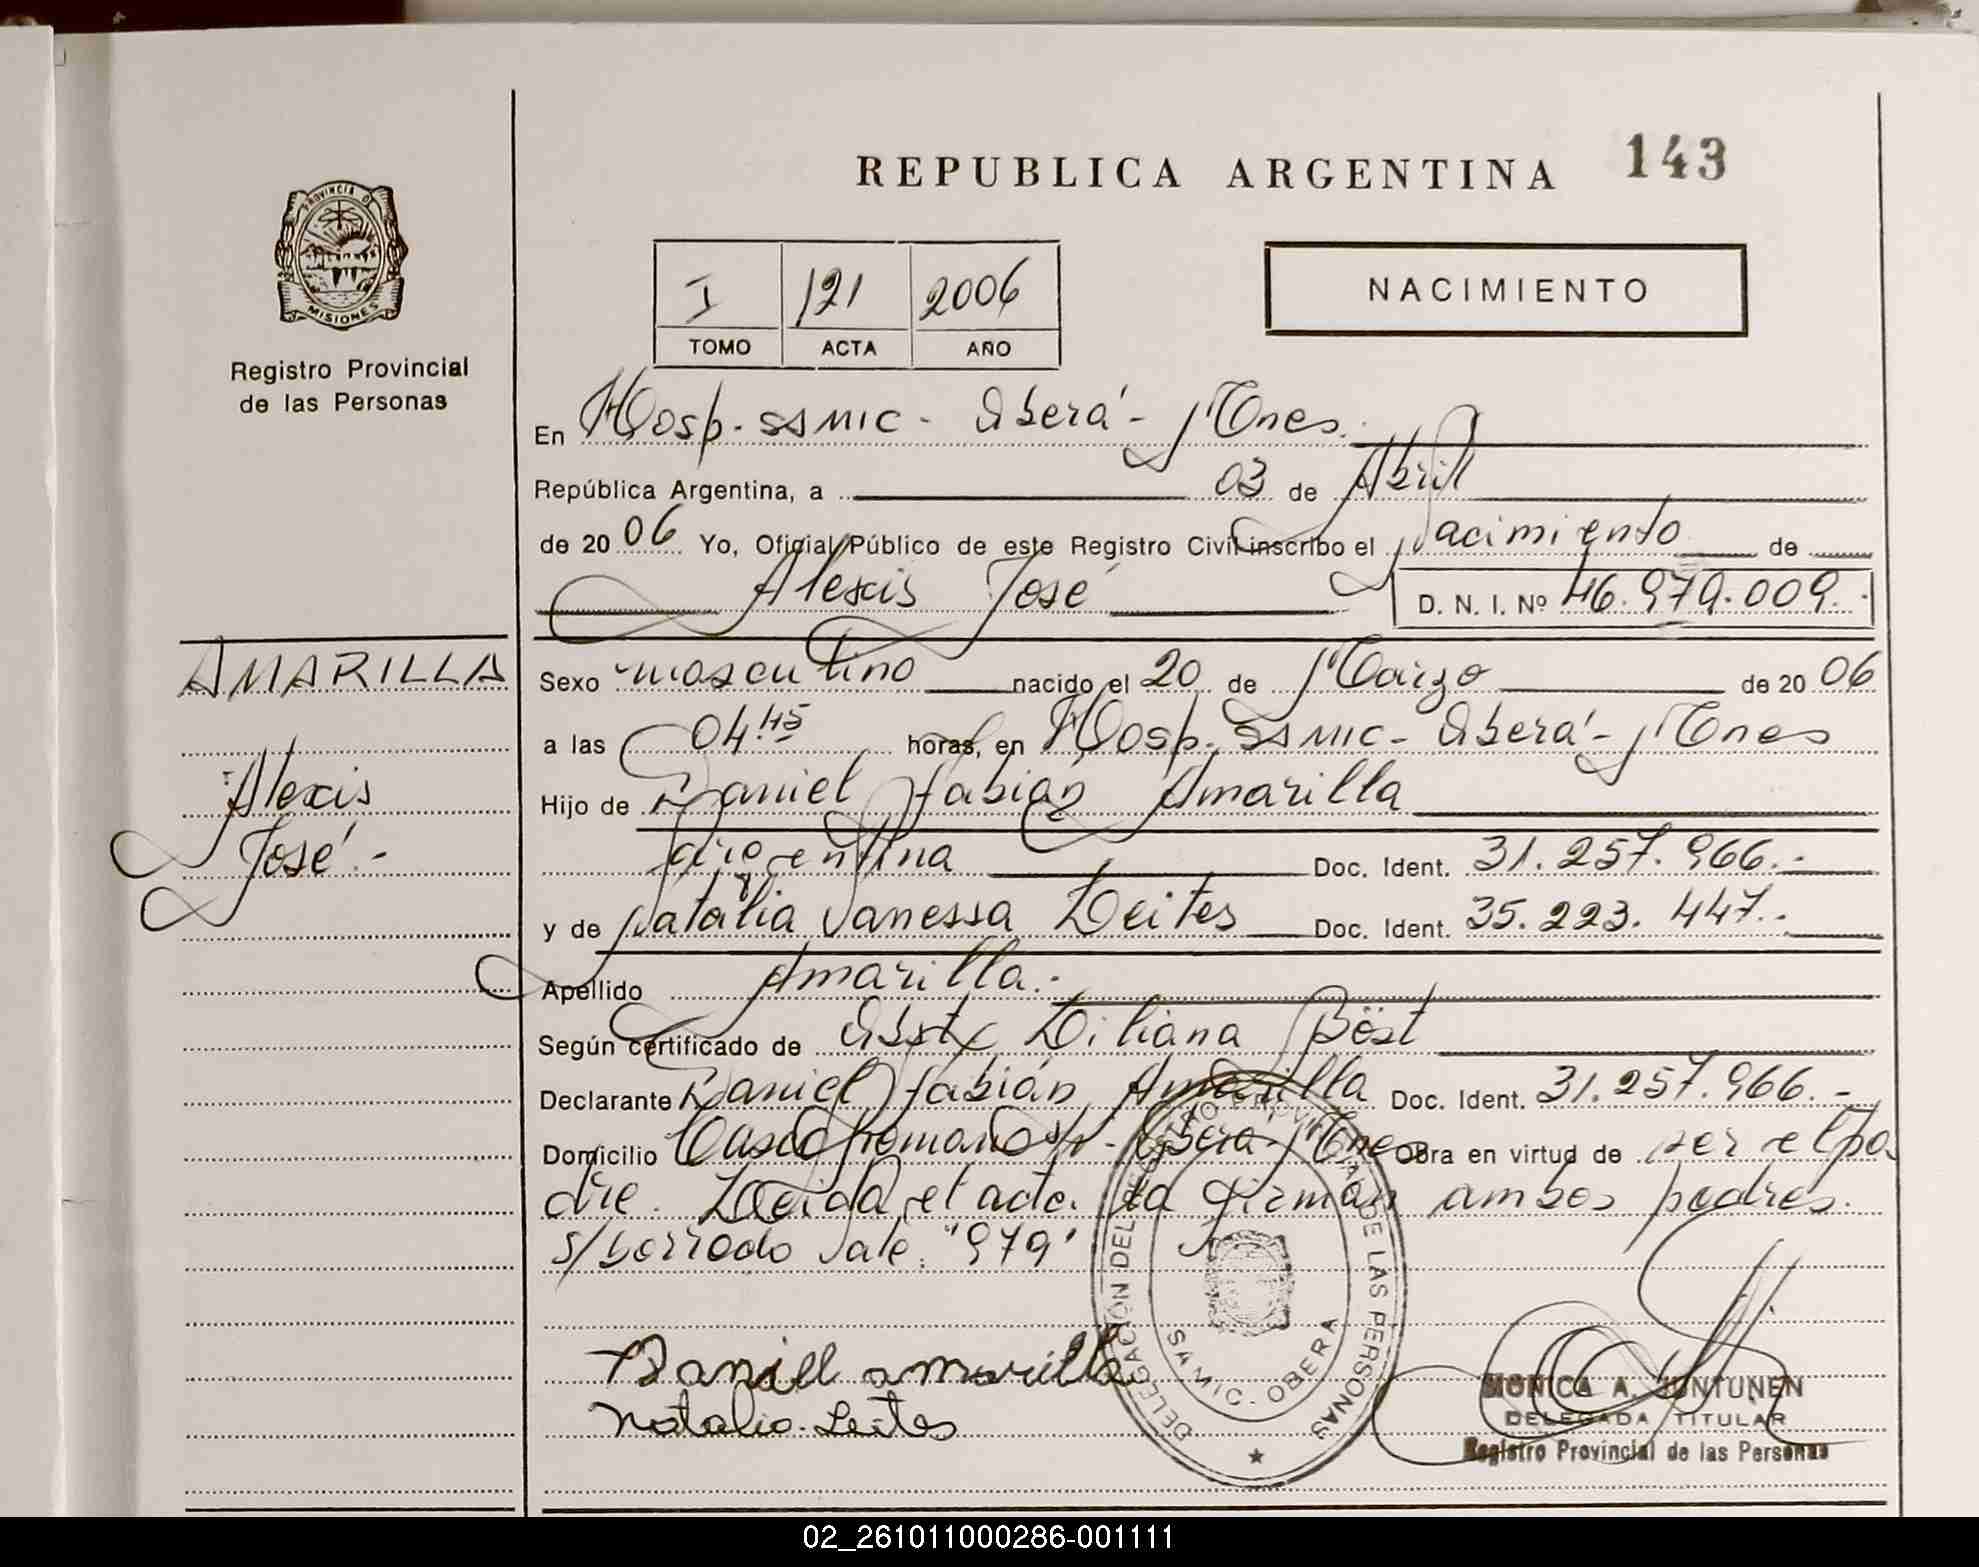 REPUBLICA ARGENTINA 143
PROVINCIA DE
MISIONES
Registro Provincial
de las Personas
I 121 2006
TOMO ACTA AÑO
NACIMIENTO
En Hosp. SAMIC - Oberá - Mnes.
República Argentina, a 03 de Abril
de 2006 Yo, Oficial Público de este Registro Civil inscribo el Nacimiento de
Alexis José D. N. I. Nº 46.979.009.-
AMARILLA
Alexis
José.-
Sexo masculino nacido el 20 de Marzo de 2006
a las 04.45 horas, en Hosp. SAMIC - Oberá - Mnes
Hijo de Daniel Fabián Amarilla
argentina Doc. Ident. 31.257.966.-
y de Natalia Vanessa Leites Doc. Ident. 35.223.447.-
Apellido Amarilla.-
Según certificado de Obst. Liliana Böst
Declarante Daniel Fabián Amarilla Doc. Ident. 31.257.966.-
Domicilio Oberá - Mnes Obra en virtud de ser el pa
dre. Leida el acta la firman ambos padres.
s/borrado vale: "979"
Daniel amarilla
Natalia. Leites
DELEGACIÓN DEL REGISTRO PROVINCIAL DE LAS PERSONAS
SAMIC - OBERA
MONICA A. JUNTUNEN
DELEGADA TITULAR
Registro Provincial de las Personas
02_261011000286-001111